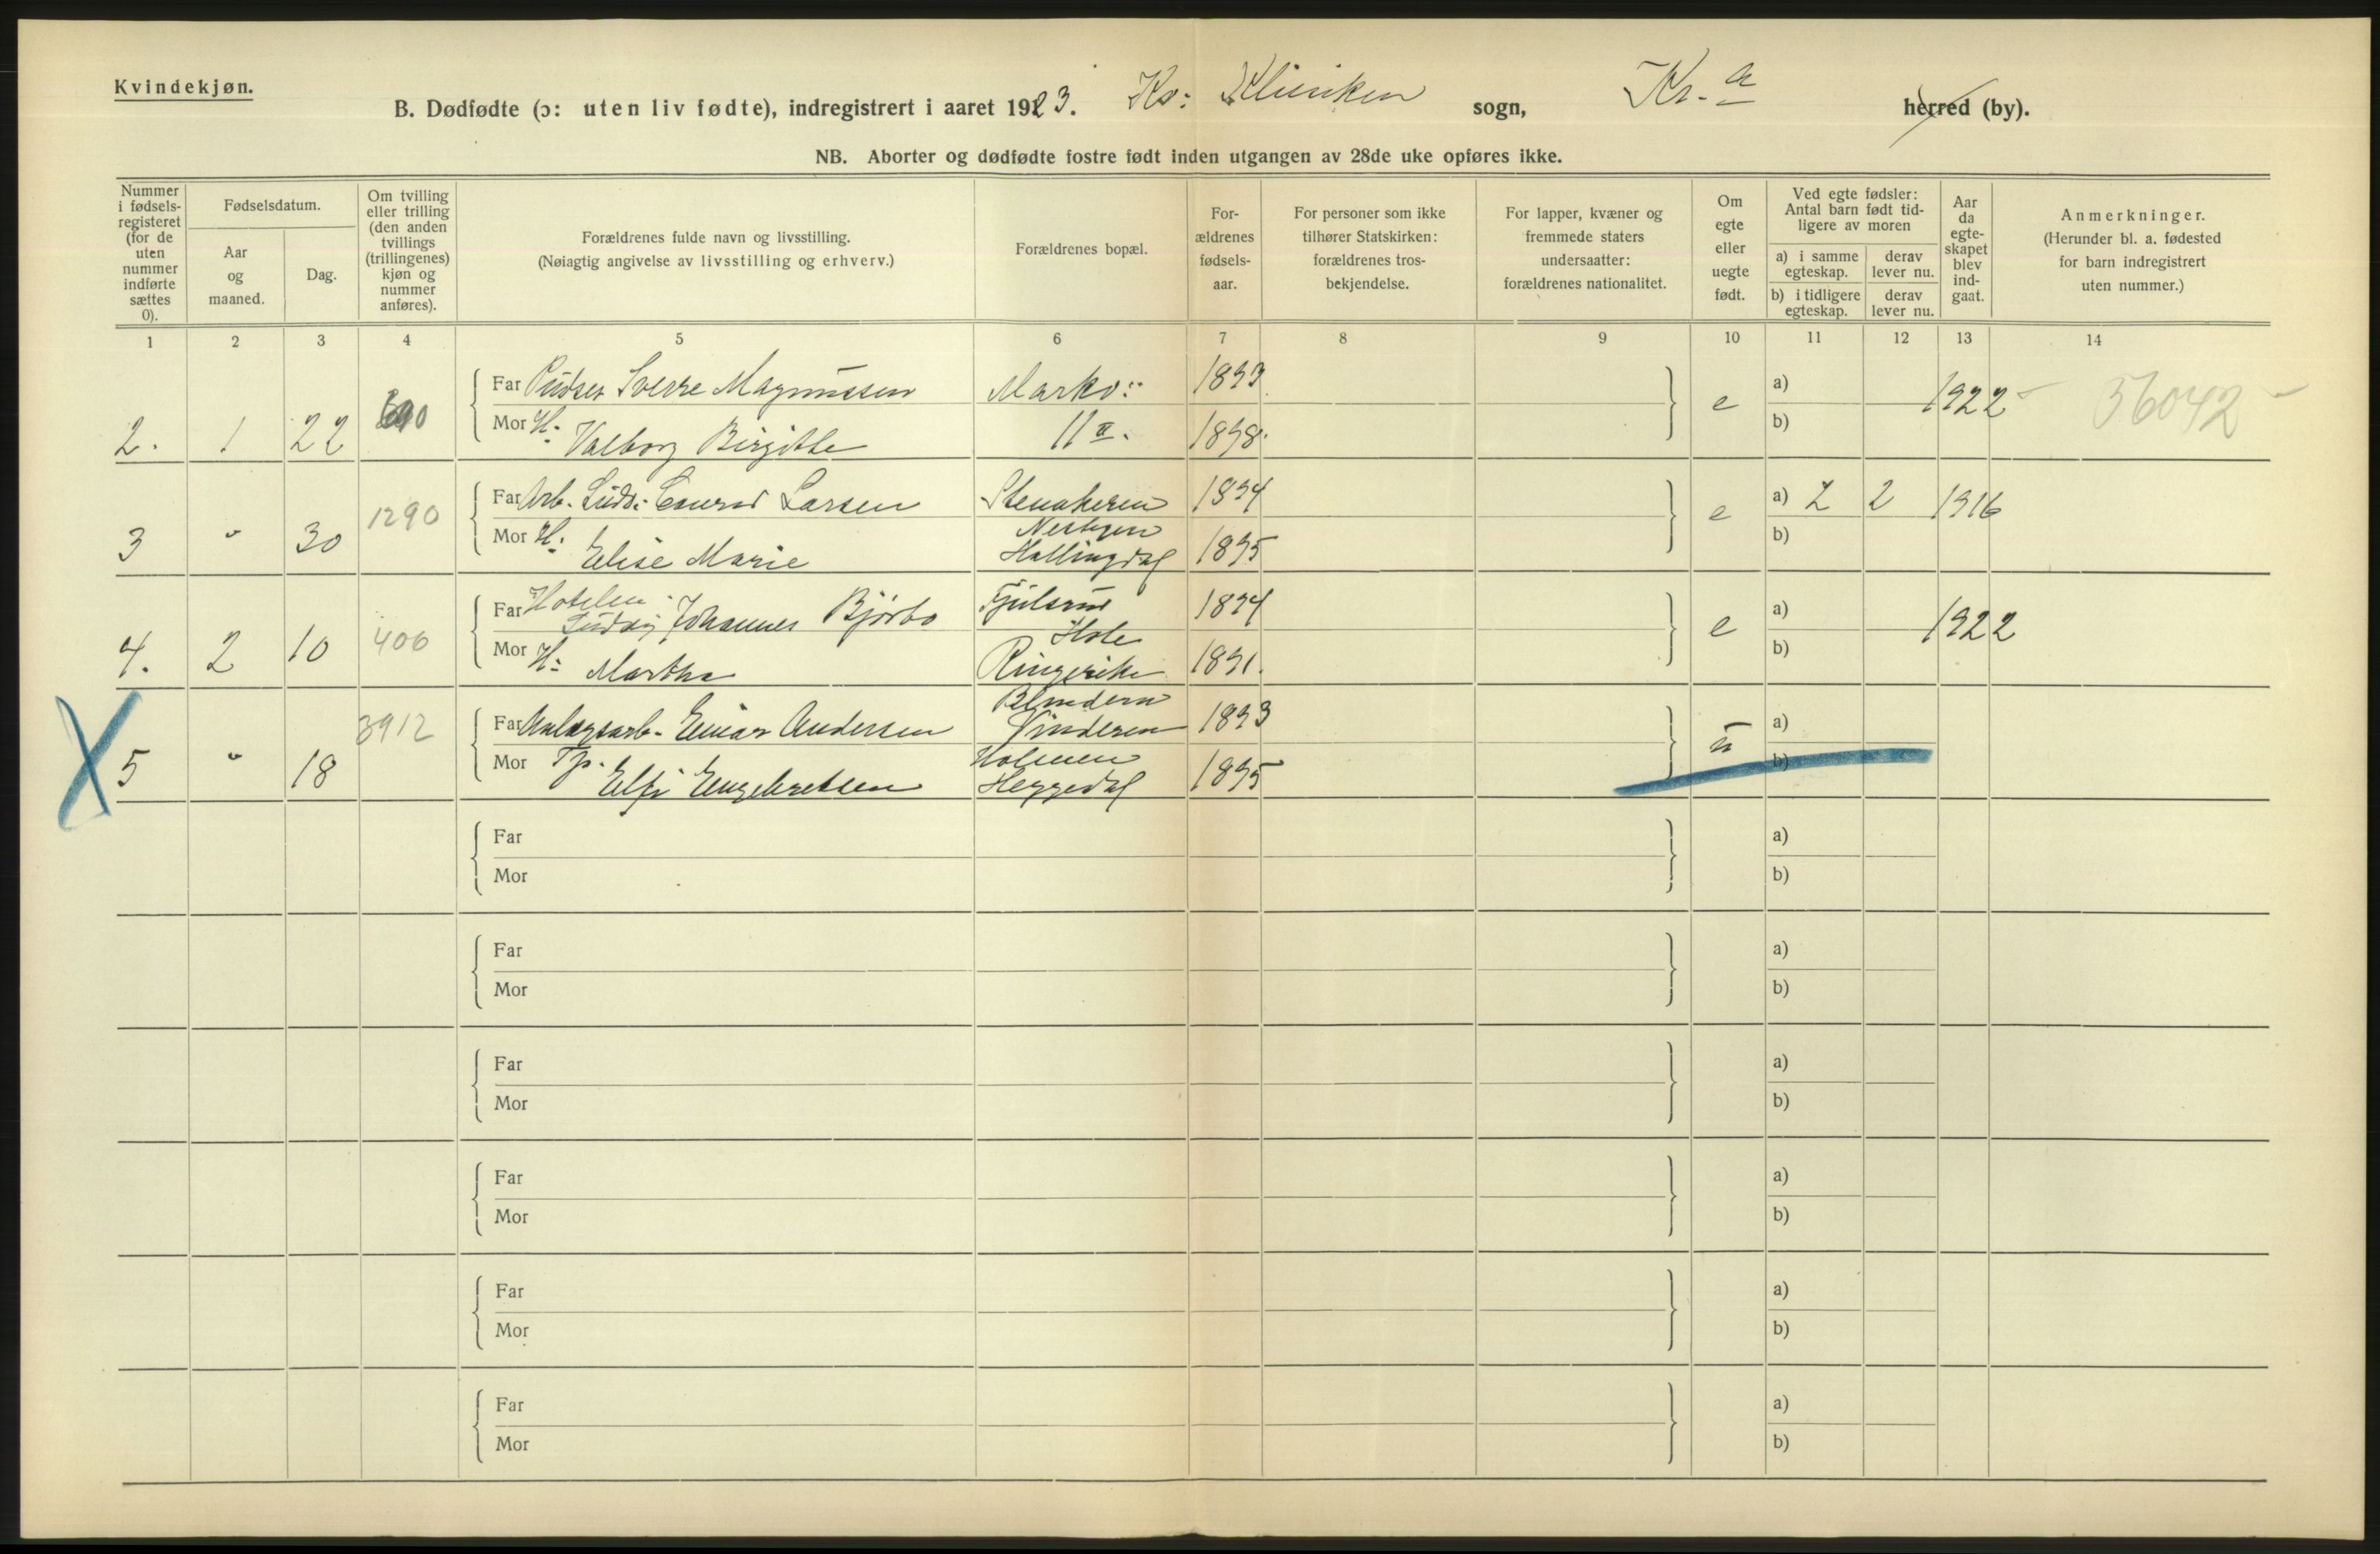 Kvindekjøn.
B. Dødfødte (ɔ: uten liv fødte), indregistrert i aaret 1923. Kv: Kliniken sogn, Kr.a herred (by).
NB. Aborter og dødfødte fostre født inden utgangen av 28de uke opføres ikke.
Nummer i fødsels-registeret (for de uten nummer indførte sættes 0).
Fødselsdatum.
Aar og maaned.
Dag.
Om tvilling eller trilling (den anden tvillings (trillingenes) kjøn og nummer anføres).
Forældrenes fulde navn og livsstilling.
(Nøiagtig angivelse av livsstilling og erhverv.)
Forældrenes bopæl.
For-ældrenes fødsels-aar.
For personer som ikke tilhører Statskirken: forældrenes tros-bekjendelse.
For lapper, kvæner og fremmede staters undersaatter: forældrenes nationalitet.
Om egte eller uegte født.
Ved egte fødsler: Antal barn født tid-ligere av moren
a) i samme egteskap.
derav lever nu.
b) i tidligere egteskap.
derav lever nu.
Aar da egte-skapet blev ind-gaat.
Anmerkninger.
(Herunder bl. a. fødested for barn indregistrert uten nummer.)
1 2 3 4 5 6 7 8 9 10 11 12 13 14
Far Pudser Sverre Magnussen Markv: 1893 a)
2. 1 22 e 1922 56042
Mor H. Valborg Birgitte 11 II. 1898. b)
Far Arb. Conrad Larsen 1894 a) 2 2 1916
3 " 30 1290 e
Mor H: Elise Marie Hallingdal 1895 b)
Far Johannes Bjørbo 1894 a)
4. 2 10 400 Hole e 1922
Mor H: Martha Ringerike 1891. b)
Blindern
Far Anlægsarb. Einar Andersen Vinderen 1893 a)
X 5 " 18 3912 u
Mor Tj. Elfi Engebretsen Holmen Heggedal 1895 b)
Far a)
Mor b)
Far a)
Mor b)
Far a)
Mor b)
Far a)
Mor b)
Far a)
Mor b)
Far a)
Mor b)